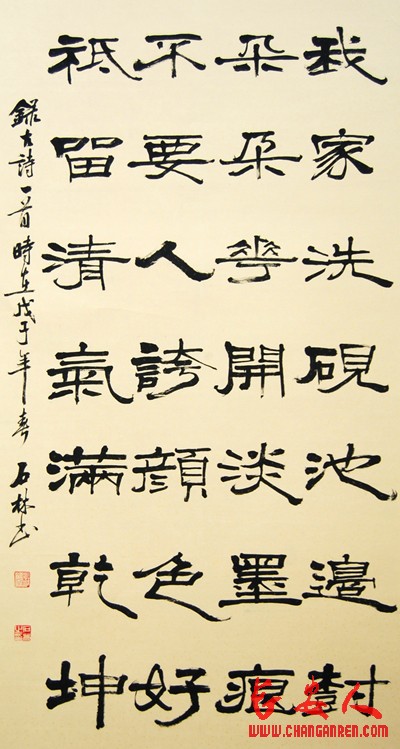 我家洗硯池邊樹
朵朵華開淡墨痕
不要人誇顏色好
祗留清氣滿乾坤
錄古詩一首時在戊子年春石林书
长安人
WWW.CHANGANREN.COM